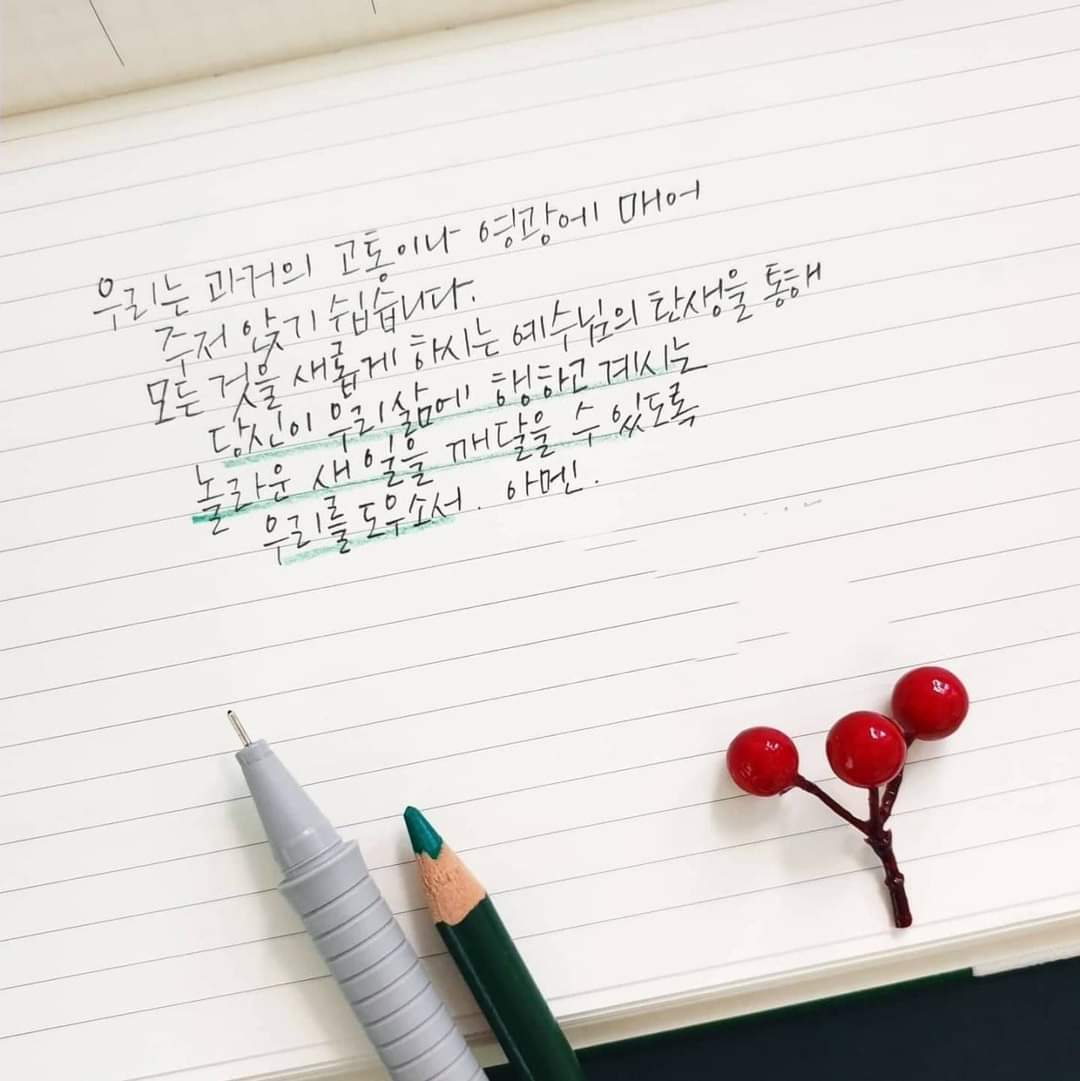 우리는 과거의 고통이나 영광에 매어
주저 앉기 쉽습니다.
모든 것을 새롭게 하시는 예수님의 탄생을 통해
당신이 우리 삶에 행하고 계시는
놀라운 새 일을 깨달을 수 있도록
우리를 도우소서. 아멘.